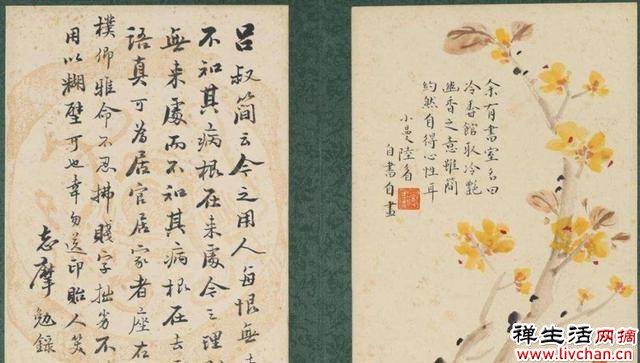 呂叔簡云今之用人每恨無去
不知其病根在来處今之理
無来處而不知其病根在去
語真可為居官居家者座右
樸仰雅命不忍拂賤字拙劣不
用以糊壁可也幸勿送印貽人笑
志摩 勉錄
余有書室名曰
冷香館取冷艷
幽香之意雖簡
約然自得心性耳
小曼陸眉
自書自畫
禅生活网摘
www.livchan.cn